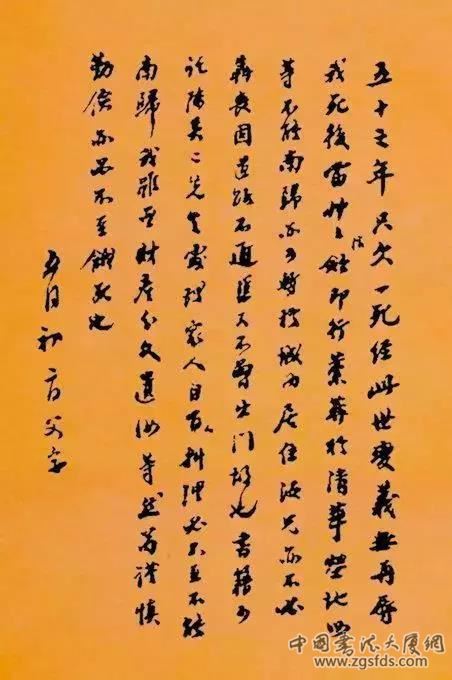 五十之年只欠一死經此世變義無再辱
我死後當草草棺斂即行藁葬於清華塋地汝
等不能南歸亦可暫於城內居住汝兄亦不必
奔喪因道路不通渠又不曾出門故也書籍可
託陳吳二先生處理家人自有人料理必不至不能
南歸我雖無財產分文遺汝等然苟謹慎
勤儉亦必不至餓死也
五月初二日父字
中國書法大廈網
www.zgsfds.com